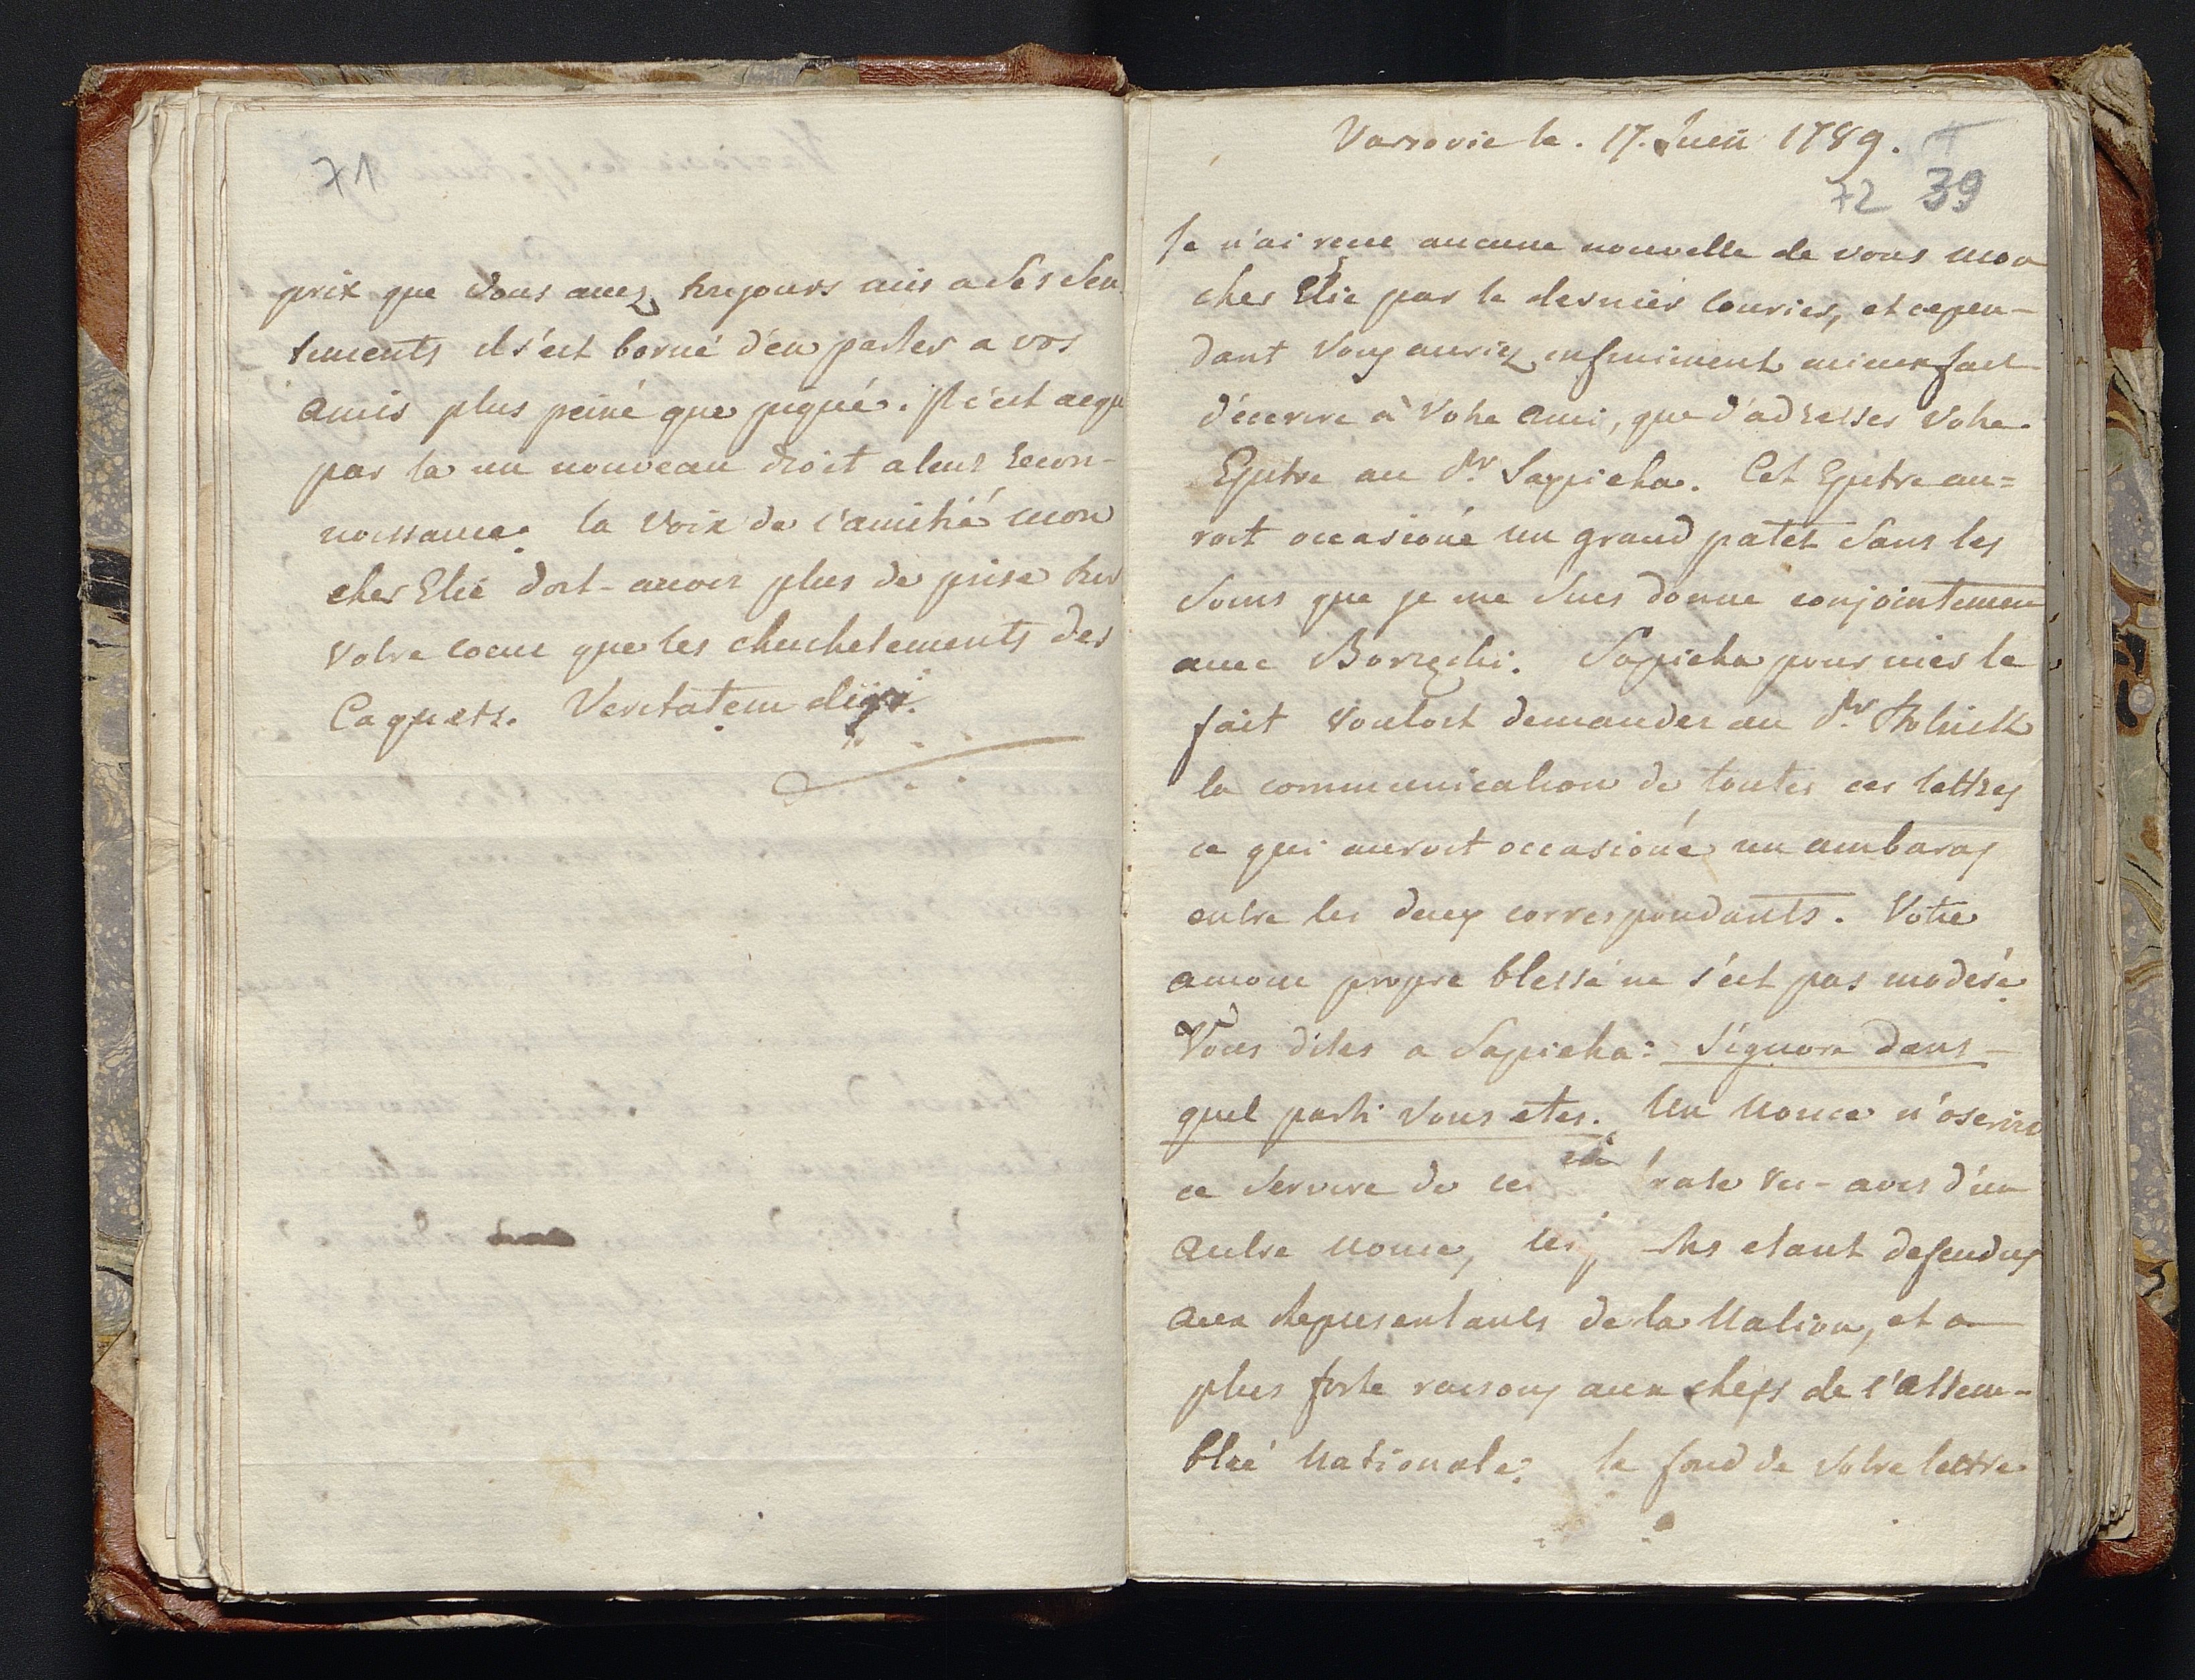 71
prix que Vous avez toujours mis a Ses Sen
timents il s'est borné d'en parler a vos
amis plus peiné que piqué. Il s'est acqu
par la un nouveau droit a leur recon-
noissance. la Voix de l'amitié mon
cher Elie doit avoir plus de prise sur
Votre coeur que les chuchetements des
Caquets. Veritatem dixi.
Varsovie le. 17. Juin 1789.
72 39
Je n'ai reçu aucune nouvelle de vous mon
cher Elie par le dernier Courier, et cepen-
dant Vous auriez infiniment mieux fait
d'écrire à Votre Ami, que d'adresser Votre
Epitre au Pr. Sapieha. Cet Epitre au=
roit occasioné un grand patet Sans les
Soins que je me Suis donné conjointement
avec Borzęcki. Sapieha pour nier le
fait Vouloit demander au Pr.
la communication de toutes ces lettres
ce qui auroit occasioné un ambaras
entre les deux correspondants. Votre
amour propre blessé ne s'est pas moderé
Vous dites a Sapieha: J'ignore dans
quel parti Vous etes. Un Nonce n'oseroit
ce Servire de ces vis-avis d'un
autre Nonce, les etant defendus
aux Representants de la Nation, et a
plus forte raisons aux chefs de l'assem-
blée Nationale. le fond de Votre lettre